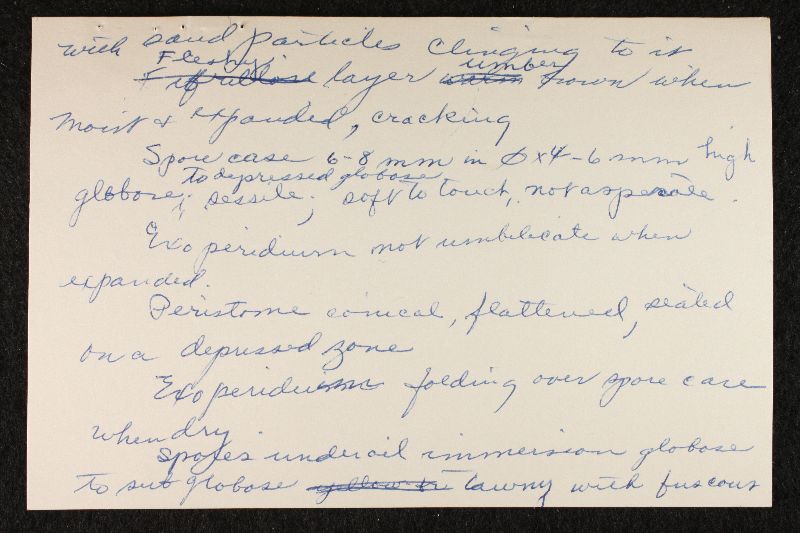 with sand particles clinging to it
Fleshy umber
Fibrillose layer brown when
moist & expanded, cracking
Spore case 6-8 mm in φ x 4-6 mm high
to depressed globose
globose; sessile; soft to touch, not asperate.
Exoperidium not umbilicate when
expanded.
Peristome conical, flattened, seated
on a depressed zone
Exoperidium folding over spore case
when dry.
Spores under oil immersion globose
to subglobose yellow to tawny with fuscous